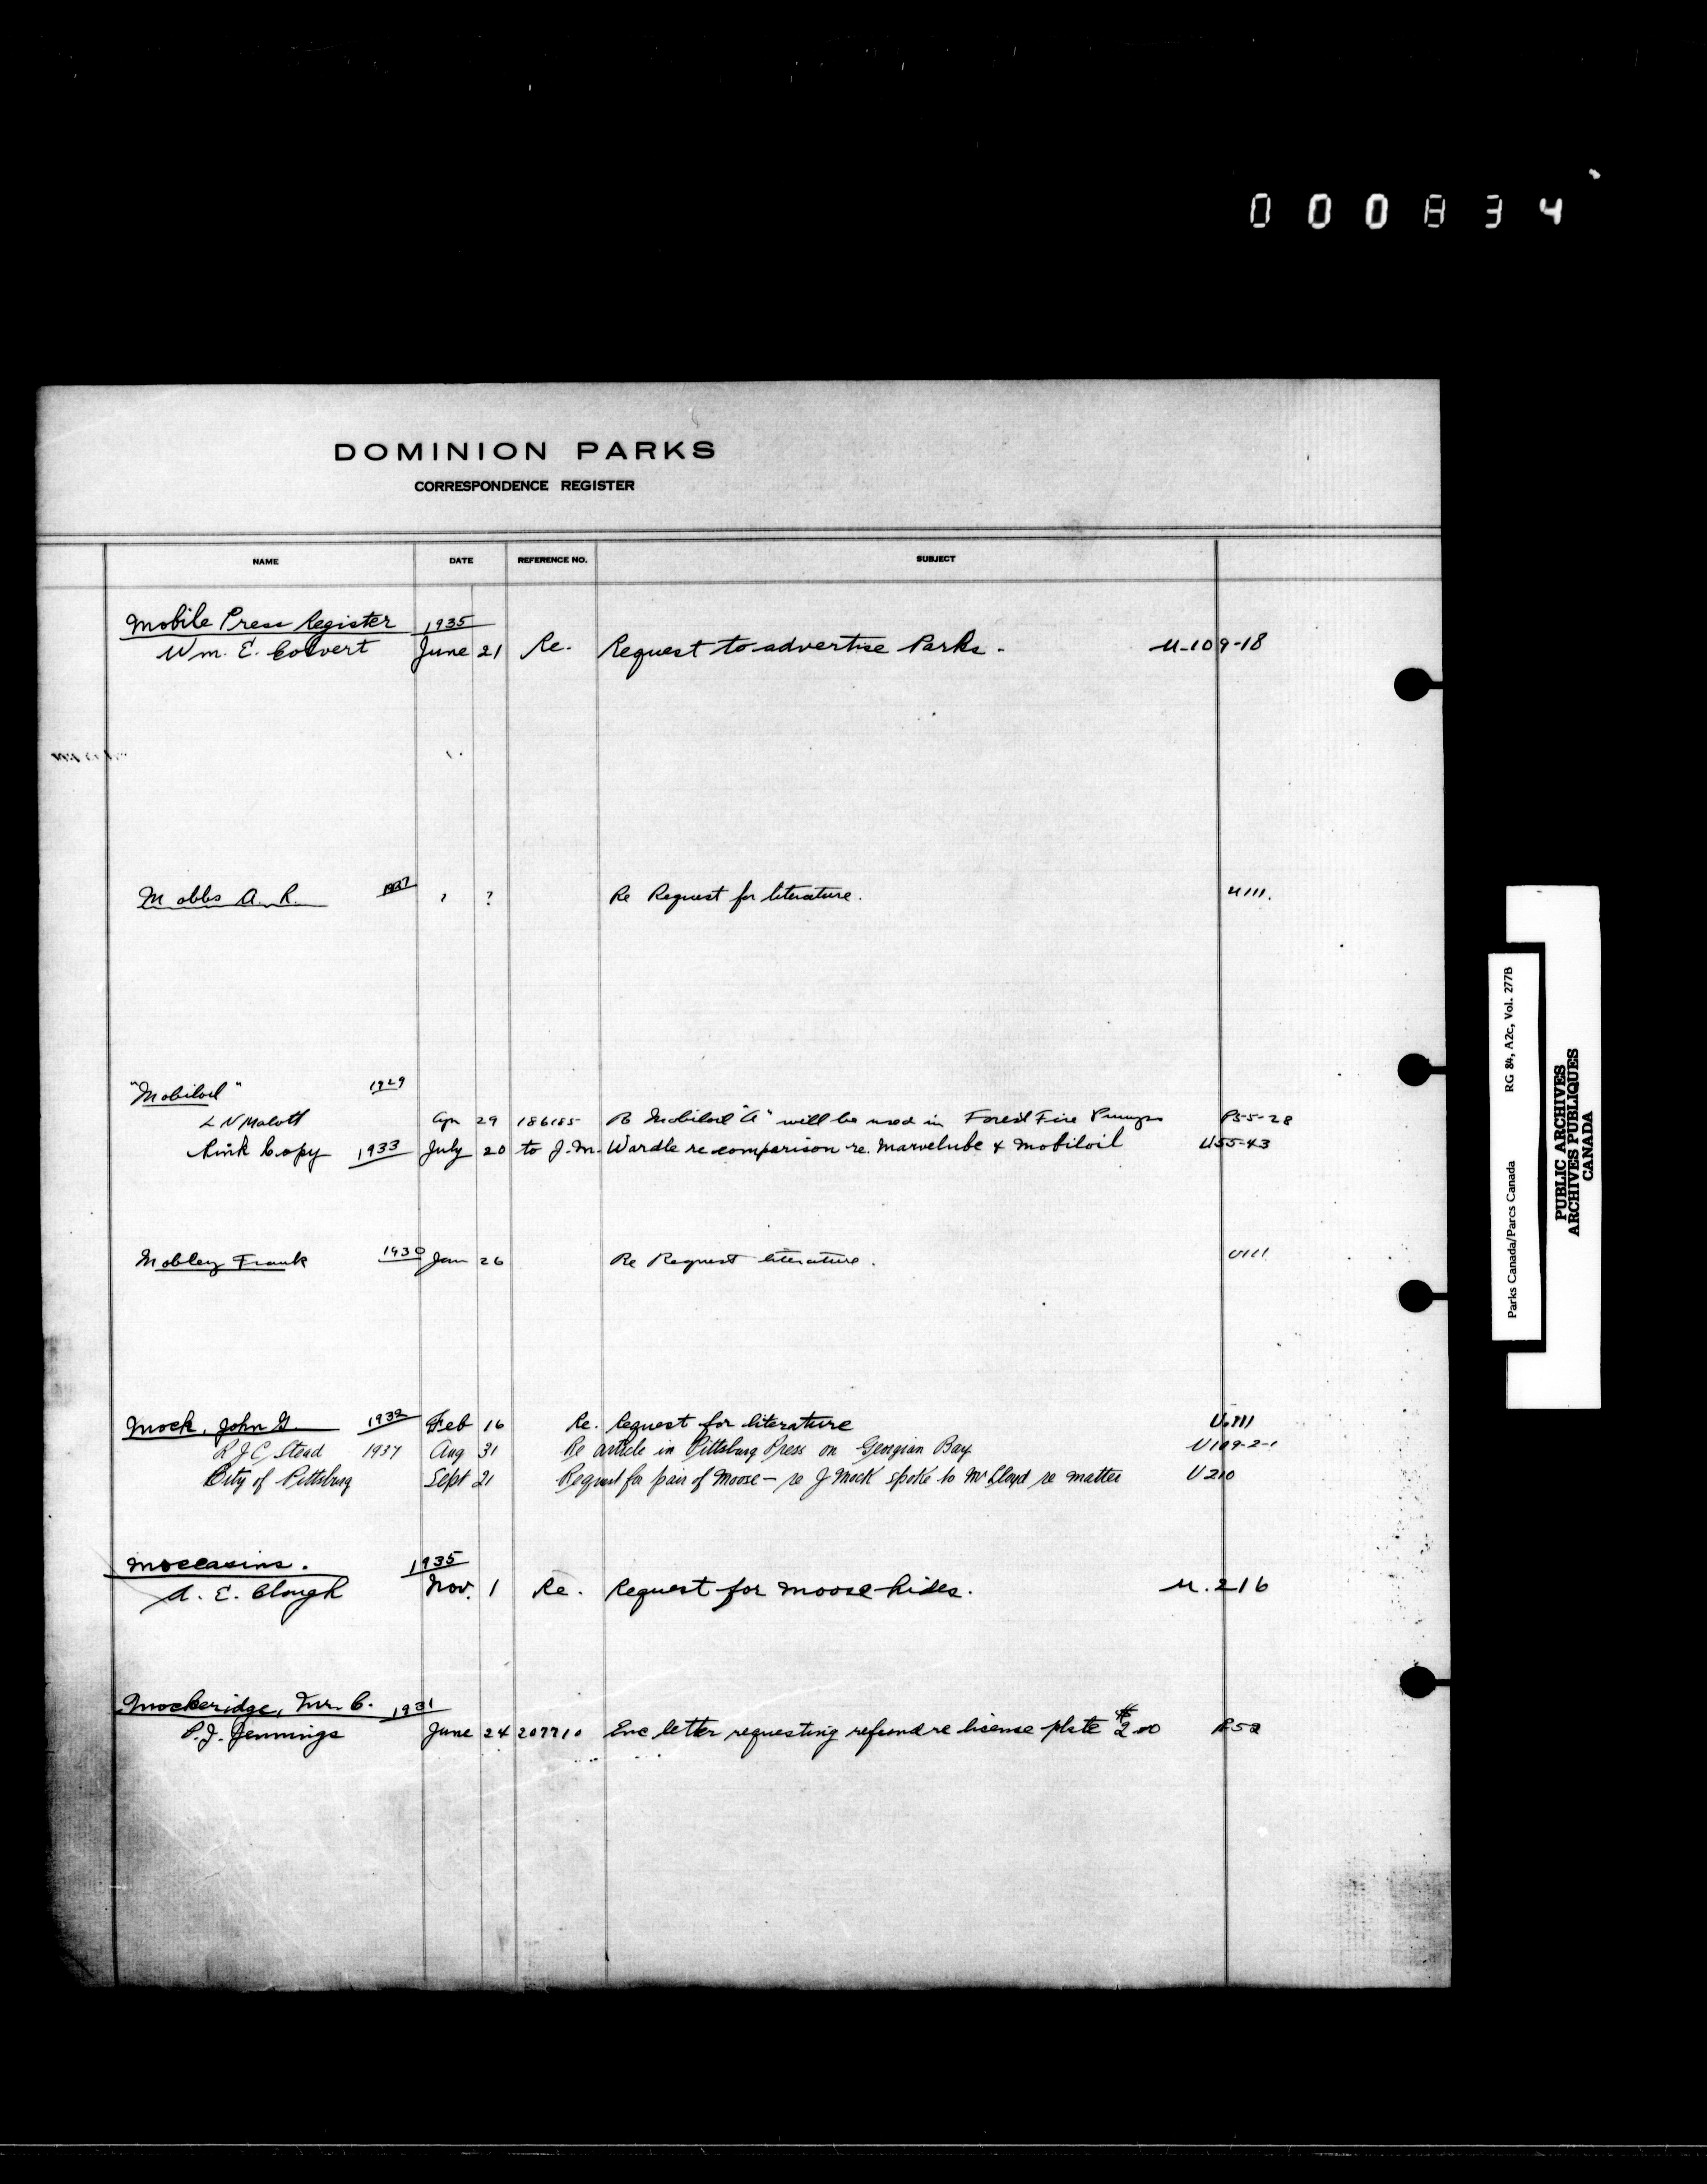 000834
DOMINION PARKS
CORRESPONDENCE REGISTER
NAME DATE REFERENCE NO. SUBJECT
Mobile Press Register 1935
Wm. E. Colvert June 21 Re. Request to advertise Parks. U-109-18
Mobbs A. R. 1937 ? ? Re Request for literature. U111.
"Mobiloil" 1929
L N Malott Apr 29 186185 Re Mobiloil "A" will be used in Forest Fire Pumps P55-28
Pink Copy 1933 July 20 to J.M. Wardle re comparison re. Marvelube & Mobiloil U55-43
Mobley Frank 1930 Jan 26 Re Request literature. U111
Mock, John G. 1932 Feb 16 Re. Request for literature U.111
R J C Stead 1937 Aug 31 Re article in Pittsburg Press on Georgian Bay U109-2-1
City of Pittsburg Sept 21 Request for pair of Moose — re J Mock spoke to Mr Lloyd re matter U210
Moccasins. 1935
A. E. Clough Nov. 1 Re. Request for moose hides. U.216
Mockeridge, Mr. C. 1931
P.J. Jennings June 24 207710 Enc letter requesting refund re license plate $2.00 R52
Parks Canada/Parcs Canada RG 84, A2c, Vol. 277B
PUBLIC ARCHIVES
ARCHIVES PUBLIQUES
CANADA